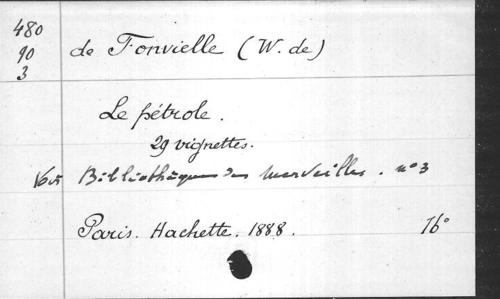 480
90
3
de Fonvielle (W. de)
Le pétrole.
29 vignettes.
Voir Bibliothèque des merveilles. n° 3
Paris. Hachette. 1888. 16°